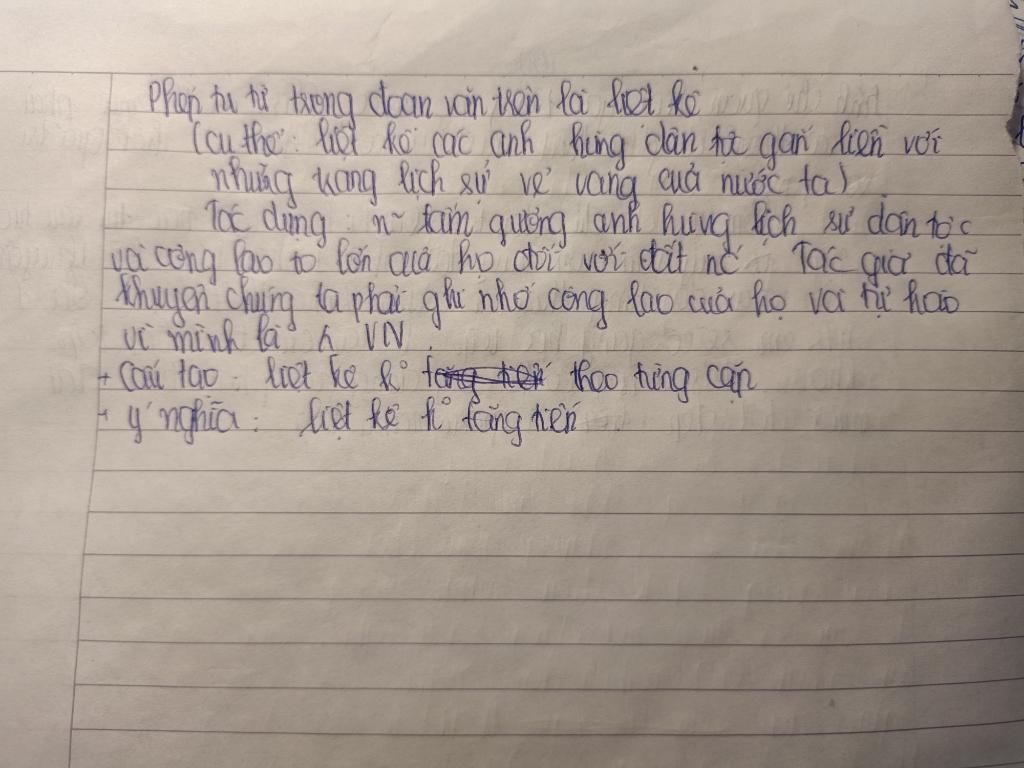 Phép tu từ trong đoạn văn trên là liệt kê
(cụ thể: liệt kê các anh hùng dân tộc gắn liền với
những trang lịch sử vẻ vang của nước ta)
Tác dụng: n~ tấm gương anh hùng lịch sử dân tộc
và công lao to lớn của họ đối với đất nc Tác giả đã
khuyên chúng ta phải ghi nhớ công lao của họ và tự hào
vì mình là ng VN.
+ Cấu tạo: liệt kê k° theo từng cặp
+ Ý nghĩa: liệt kê k° tăng tiến